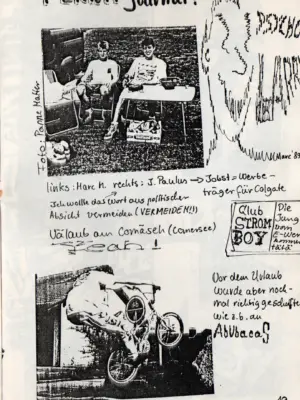 Journal!
PSYCHO
Marc 89
Foto: Panne Matter
links: Marc H. rechts: J. Paulus → Jobst = Werbe-
träger für Colgate
Ich wollte das Wort aus politischer
Absicht vermeiden (VERMEIDEN!!)
Uälaub am Comäsch (Comersee)
Yeah!
Club
STROM
BOY
Die
Jung
vom
E-Wer
komme
Vor dem Urlaub
wurde aber noch-
mal richtig geschufte
wie z.b. an
AbUbacas